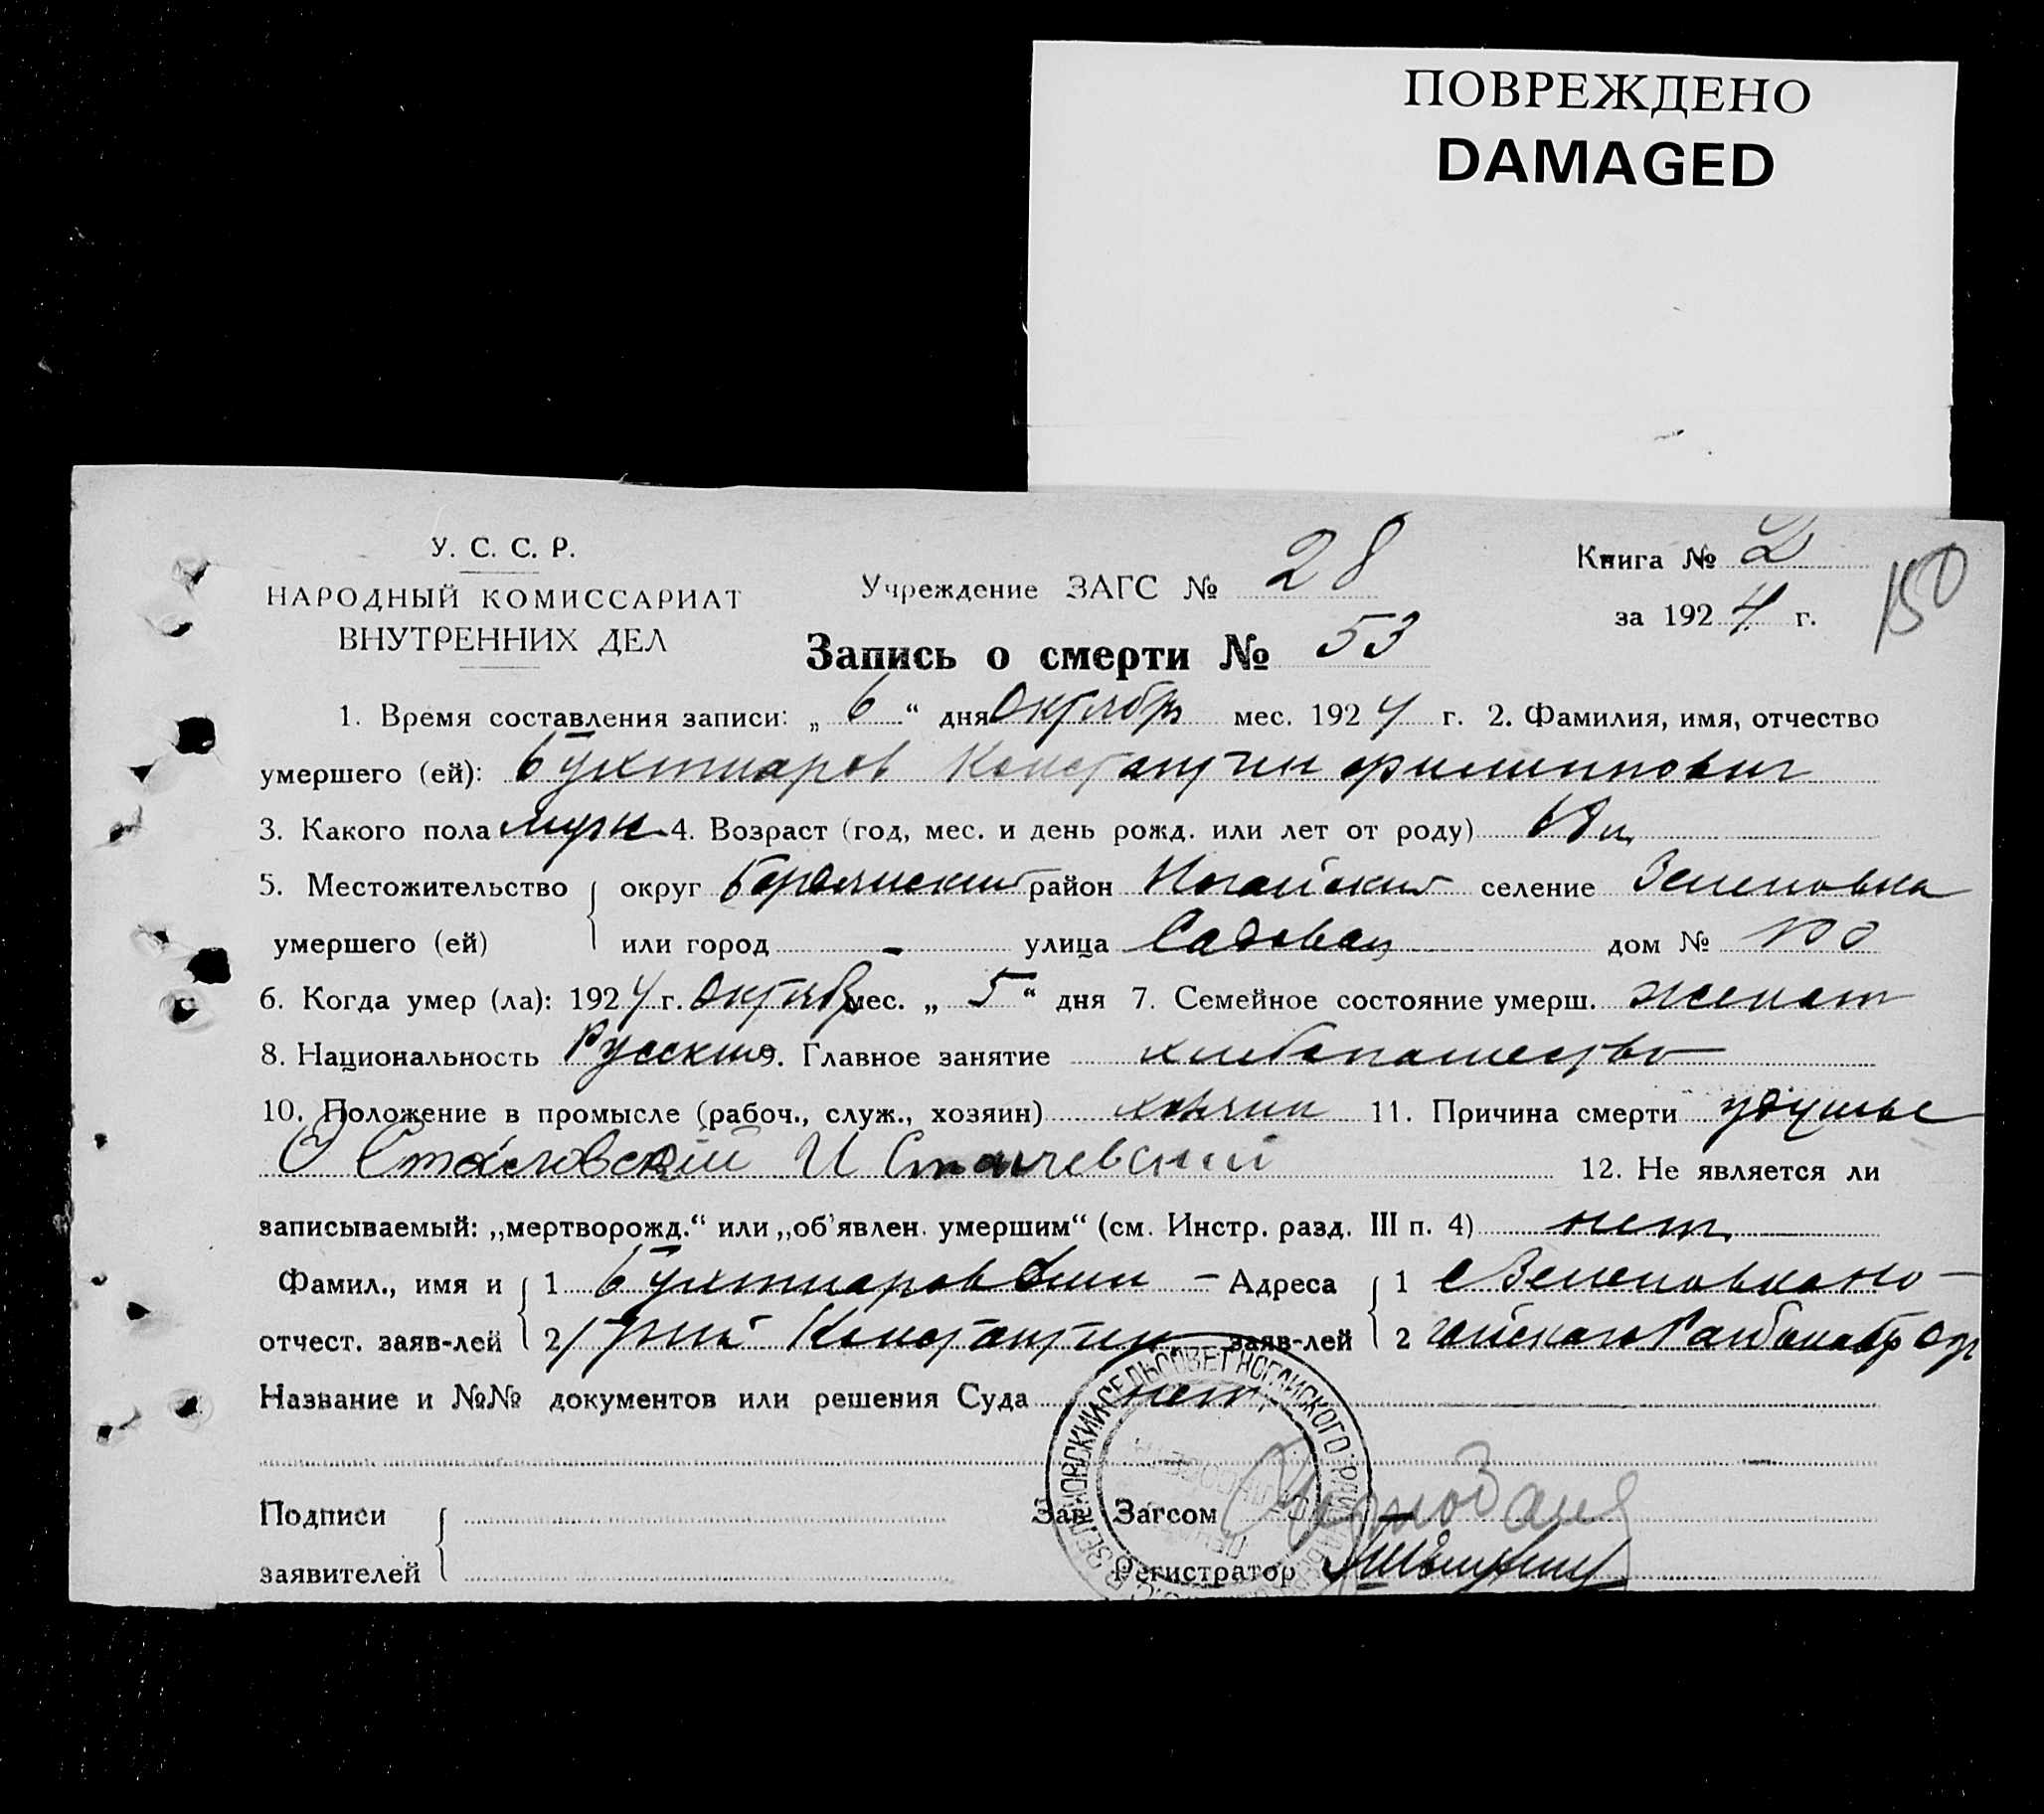 ПОВРЕЖДЕНО
DAMAGED
У. С. С. Р.
НАРОДНЫЙ КОМИССАРИАТ
ВНУТРЕННИХ ДЕЛ
Учреждение ЗАГС № 28
Книга № 2
за 1924 г.
150
Запись о смерти № 53
1. Время составления записи: „ 6 “ дня Октябр мес. 1924 г. 2. Фамилия, имя, отчество
умершего (ей): Бухтиаров Константин филиппович
3. Какого пола муж 4. Возраст (год, мес. и день рожд. или лет от роду)
5. Местожительство округ Бердянский район Ногайский селение Зеленовка
умершего (ей) или город - улица Садовая дом № 100
6. Когда умер (ла): 1924 г. Октяб мес. „ 5 “ дня 7. Семейное состояние умерш. женат
8. Национальность Русский 9. Главное занятие хлебопашество
10. Положение в промысле (рабоч., служ., хозяин) хозяин 11. Причина смерти удушье
12. Не является ли
записываемый: „мертворожд.“ или „об’явлен. умершим“ (см. Инстр. разд. III п. 4) нет
Фамил., имя и 1 Бухтиаров Дми - Адреса 1 с Зеленовка но-
отчест. заяв-лей 2 трий Константин заяв-лей 2 гайского
Название и №№ документов или решения Суда нет
Подписи Зав. Загсом
заявителей Регистратор
ЗЕЛЕНОВСКИЙ СЕЛЬСОВЕТ НОГАЙСКОГО